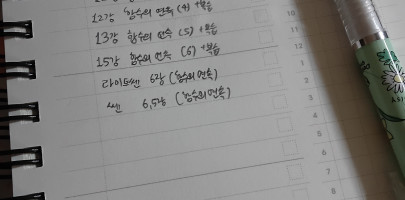 12강 함수의 연속 (4) +복습
13강 함수의 연속 (5) +복습
15강 함수의 연속 (6) +복습
라이트쎈 6강 (함수의 연속)
쎈 6,5강 (함수의 연속)
10
11
12
1
2
3
4
5
6
8